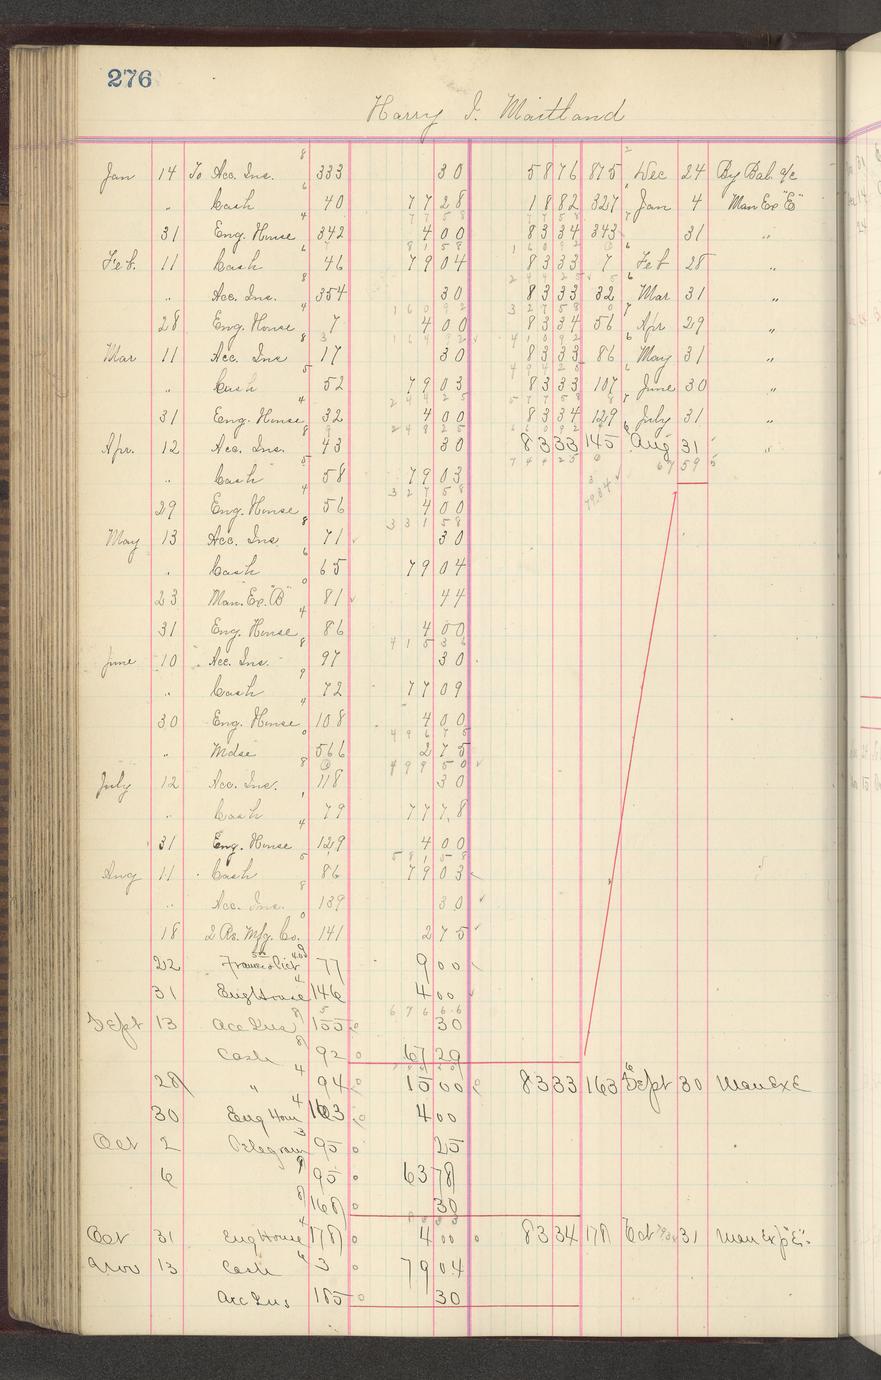 276
Harry I. Maitland
Jan 14 To Acc. Ins. 8 333 30 5876 875 2 Dec 24 By Bal. a/c
" Cash 6 40 7728 1882 327 6 Jan 4 Man Ex "E"
31 Eng. House 4 342 400 8334 343 7 31 "
Feb. 11 Cash 6 46 7904 8333 7 6 Feb 28 "
" Acc. Ins. 8 354 30 8333 32 6 Mar 31 "
28 Eng. House 4 7 400 8334 56 7 Apr 29 "
Mar 11 Acc. Ins 8 17 30 8333 86 6 May 31 "
" Cash 5 52 7903 8333 107 6 June 30 "
31 Eng. House 4 32 400 8334 129 7 July 31 "
Apr. 12 Acc. Ins. 8 43 30 8333 145 6 Aug 31 "
" Cash 5 58 7903 6759
29 Eng. House 4 56 400
May 13 Acc. Ins 8 71 30
" Cash 6 65 7904
23 Man. Ex. "B" 0 81 44
31 Eng. House 4 86 400
June 10 Acc. Ins. 8 97 30
" Cash 9 72 7709
30 Eng. House 4 108 400
" Mdse 0 566 275
July 12 Acc. Ins. 8 118 30
" Cash 1 79 7778
31 Eng. House 4 129 400
Aug 11 Cash 5 86 7903
" Acc. Ins. 8 139 30
18 2 Rs. Mfg. Co. 0 141 275
22 77 900
31 Eng House 4 146 400
Sept 13 Acc Ins 8 155 30
Cash 8 92 6729
28 " 4 94 1500 8333 163 6 Sept 30 Man Ex E
30 Eng Hou 4 163 400
Oct 2 Telegram 3 95 25
6 9 95 6378
8 168 30
Oct 31 Eng House 4 178 400 8334 178 Oct 31 Man Exp "E"
Nov 13 Cash 6 3 7904
Acc Ins 185 30